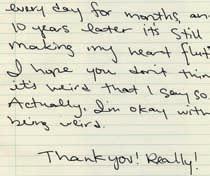 every day for months, an
10 years later it's still
making my heart flut
I hope you don't thin
it's weird that I say so.
Actually, I'm okay with
being weird.
Thank you! Really!